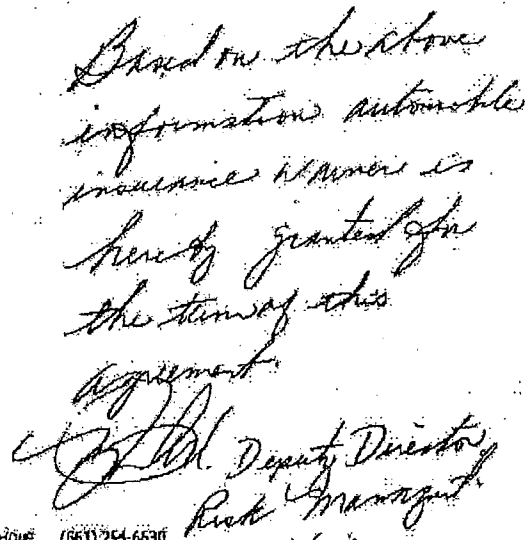 Based on the above
information automobile
insurance waiver is
hereby granted for
the term of this
agreement.
Deputy Director
Risk Managmt.
(661) 254-6630